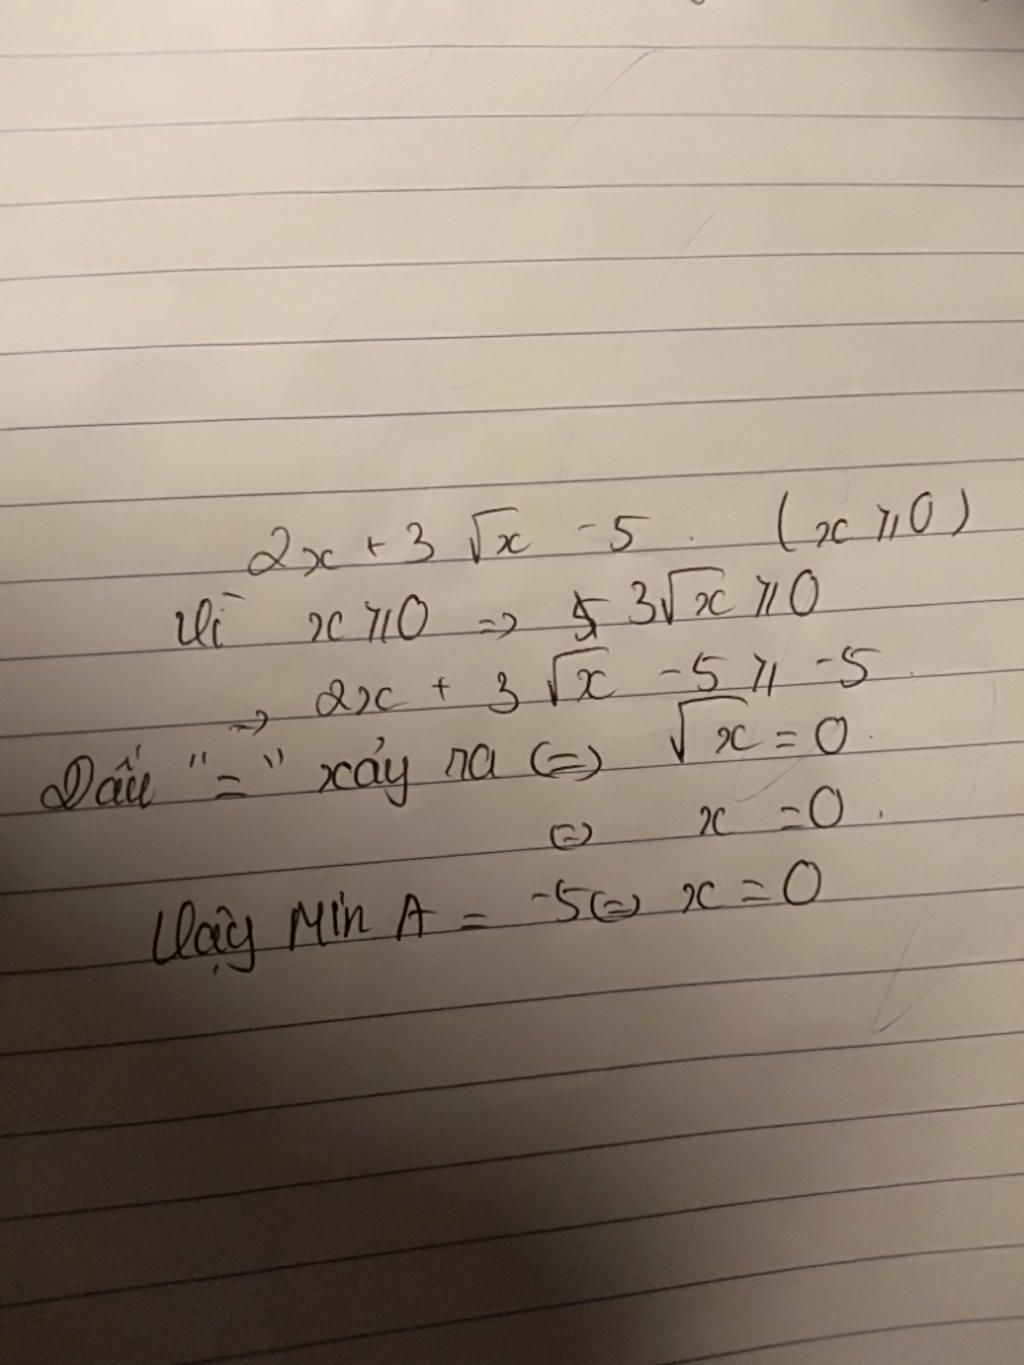 2x + 3√x - 5. (x ⩾ 0)
Vì x ⩾ 0 => 3√x ⩾ 0
=> 2x + 3√x - 5 ⩾ -5
Dấu "=" xảy ra <=> √x = 0.
<=> x = 0.
Vậy Min A = -5 <=> x = 0